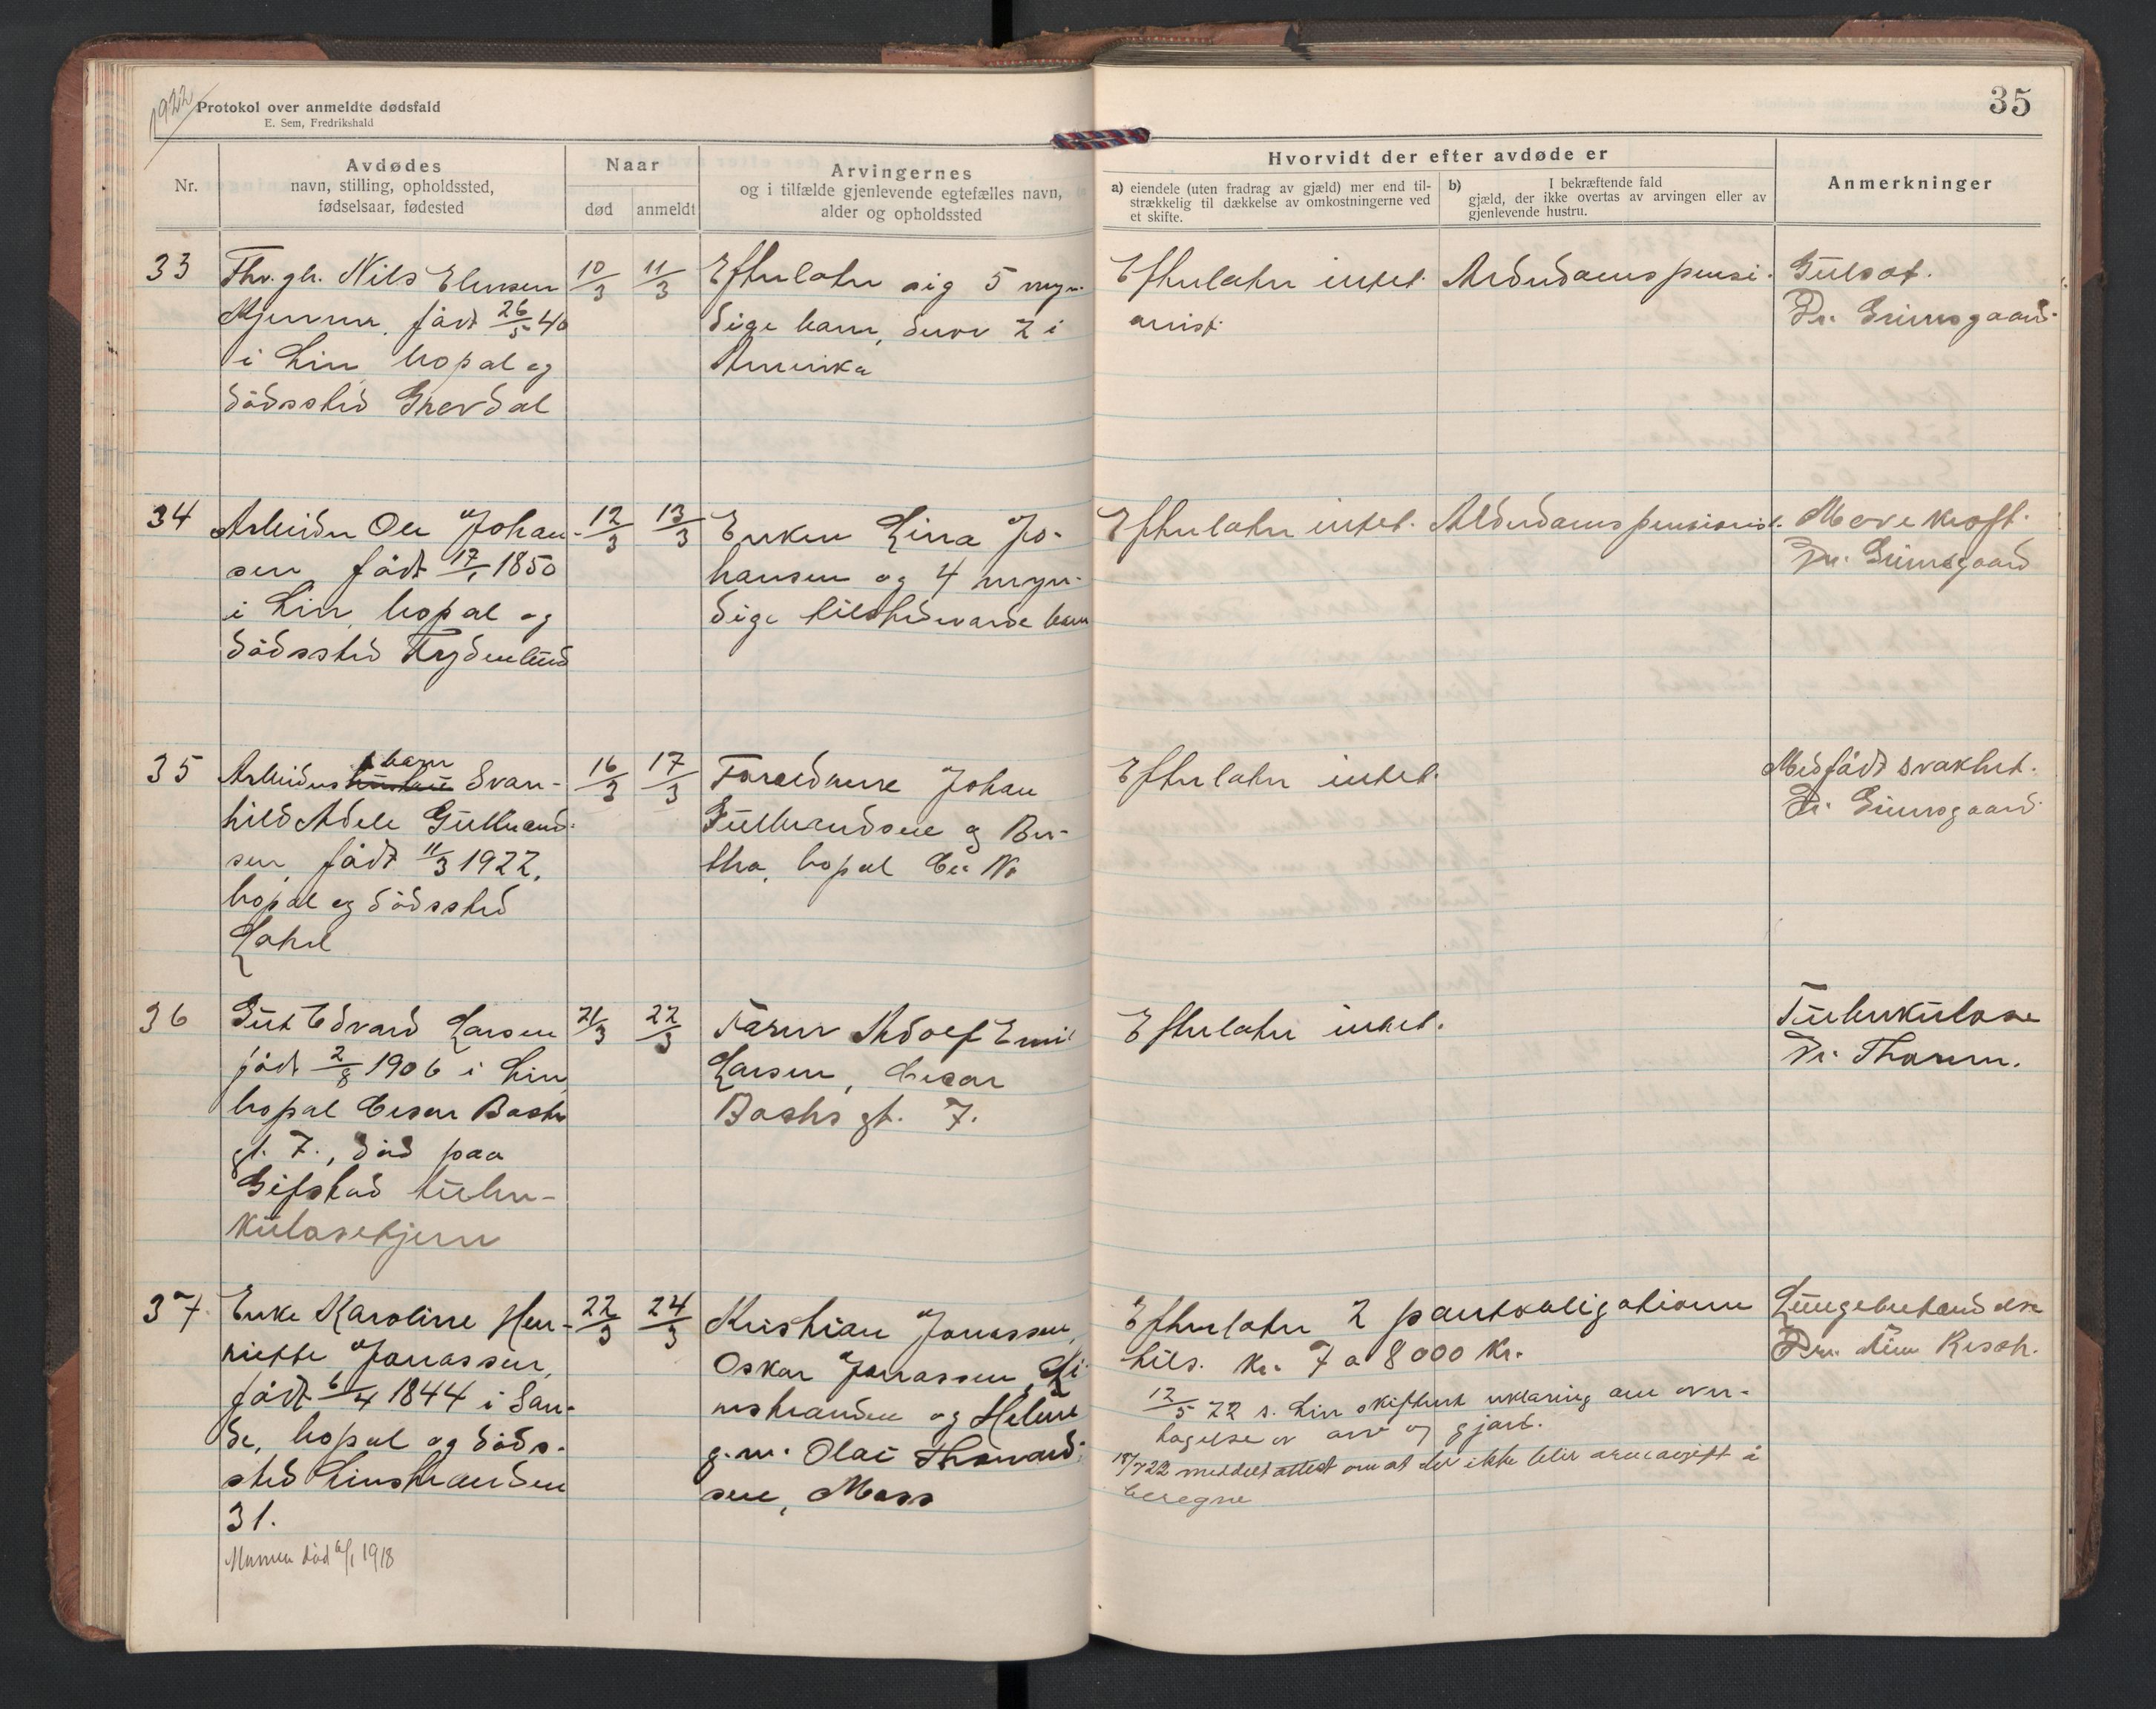 1922
Protokol over anmeldte dødsfald
E. Sem, Fredrikshald
35
Nr.
Avdødes
navn, stilling, opholdssted,
fødselsaar, fødested
Naar
død
anmeldt
Arvingernes
og i tilfælde gjenlevende egtefælles navn,
alder og opholdssted
Hvorvidt der efter avdøde er
a) eiendele (uten fradrag av gjæld) mer end til-
strækkelig til dækkelse av omkostningerne ved
et skifte.
b) I bekræftende fald
gjæld, der ikke overtas av arvingen eller av
gjenlevende hustru.
Anmerkninger
33
Nils Elensen
født 26/5 40
i Lier, bopæl og
dödssted
10/3
11/3
Efterlater sig 5 myn-
dige barn, derav 2 i
Amerika
Efterlater intet.
Alderdomspensi-
onist.
Gulsot.
Dr. Grimsgaard.
34
Arbeider Ole Johan-
sen født 17/1 1850
i Lier, bopæl og
dödssted Frydenlund
12/3
13/3
Enken Lina Jo-
hansen og 4 myn-
dige tilstedevaerende barn
Efterlater intet.
Alderdomspensionist.
Mavekræft.
Dr. Grimsgaard
35
Arbeiders barn Svan-
hild Adele Gulbrand-
sen, født 11/3 1922,
bopæl og dödssted
16/3
17/3
Foraeldrene Johan
Gulbrandsen og Ber-
tha, bopæl
Efterlater intet.
Medfødt svakhet.
Dr. Grimsgaard
36
Gut Edvard Larsen
født 2/8 1906 i Lier,
bopæl Cesar Bachs
gt. 7., død paa
Gifstad tuber-
kulosehjem
21/3
22/3
Faren Adolf Emil
Larsen, Cesar
Bachs gt. 7.
Efterlater intet.
Tuberkulose
Dr. Thorum.
37
Enke Karoline Hen-
riette Jonassen,
født 6/4 1844 i San-
de, bopæl og döds-
sted Linstranden
31.
Mannen död 6/1 1918
22/3
24/3
Kristian Jonassen,
Oskar Jonassen, Li-
nstranden og Helene
g. m. Olai Thorvald-
sen, Moss
Efterlater 2 pantobligationer
tils. kr. 7 a 8000 kr.
12/5 22 s. Lier skifteret erklæring om over-
tagelse av arv og gjæld.
18/7 22 meddelt attest om at der ikke blir arveavgift å
beregne
Lungebetændelse
Dr. Resch.